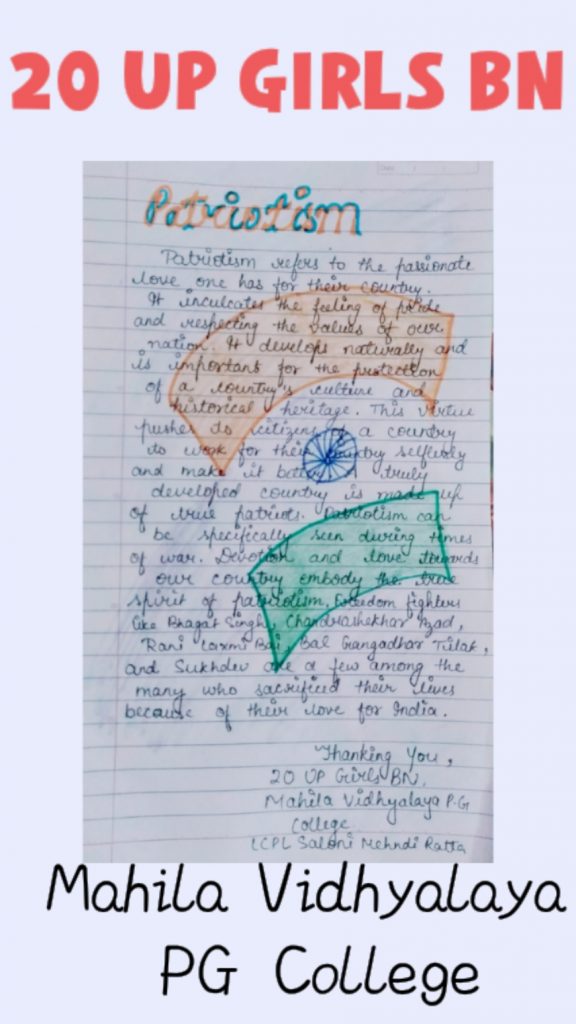 20 UP GIRLS BN
Date
Patriotism
Patriotism refers to the passionate
love one has for their country.
It inculcates the feeling of pride
and respecting the values of our
nation. It develops naturally and
is important for the protection
of a country's culture and
historical heritage. This virtue
pushes to citizens of a country
to work for their country selflessly
and make it better. A truly
developed country is made up
of true patriots. Patriotism can
be specifically seen during times
of war. Devotion and love towards
our country embody the true
spirit of patriotism. Freedom fighters
like Bhagat Singh, Chandrashekhar Azad,
Rani Laxmi Bai, Bal Gangadhar Tilak,
and Sukhdev are a few among the
many who sacrificed their lives
because of their love for India.
Thanking You,
20 UP Girls BN,
Mahila Vidhyalaya P.G
College
LCPL Saloni Mehndi Ratta
Mahila Vidhyalaya
PG College